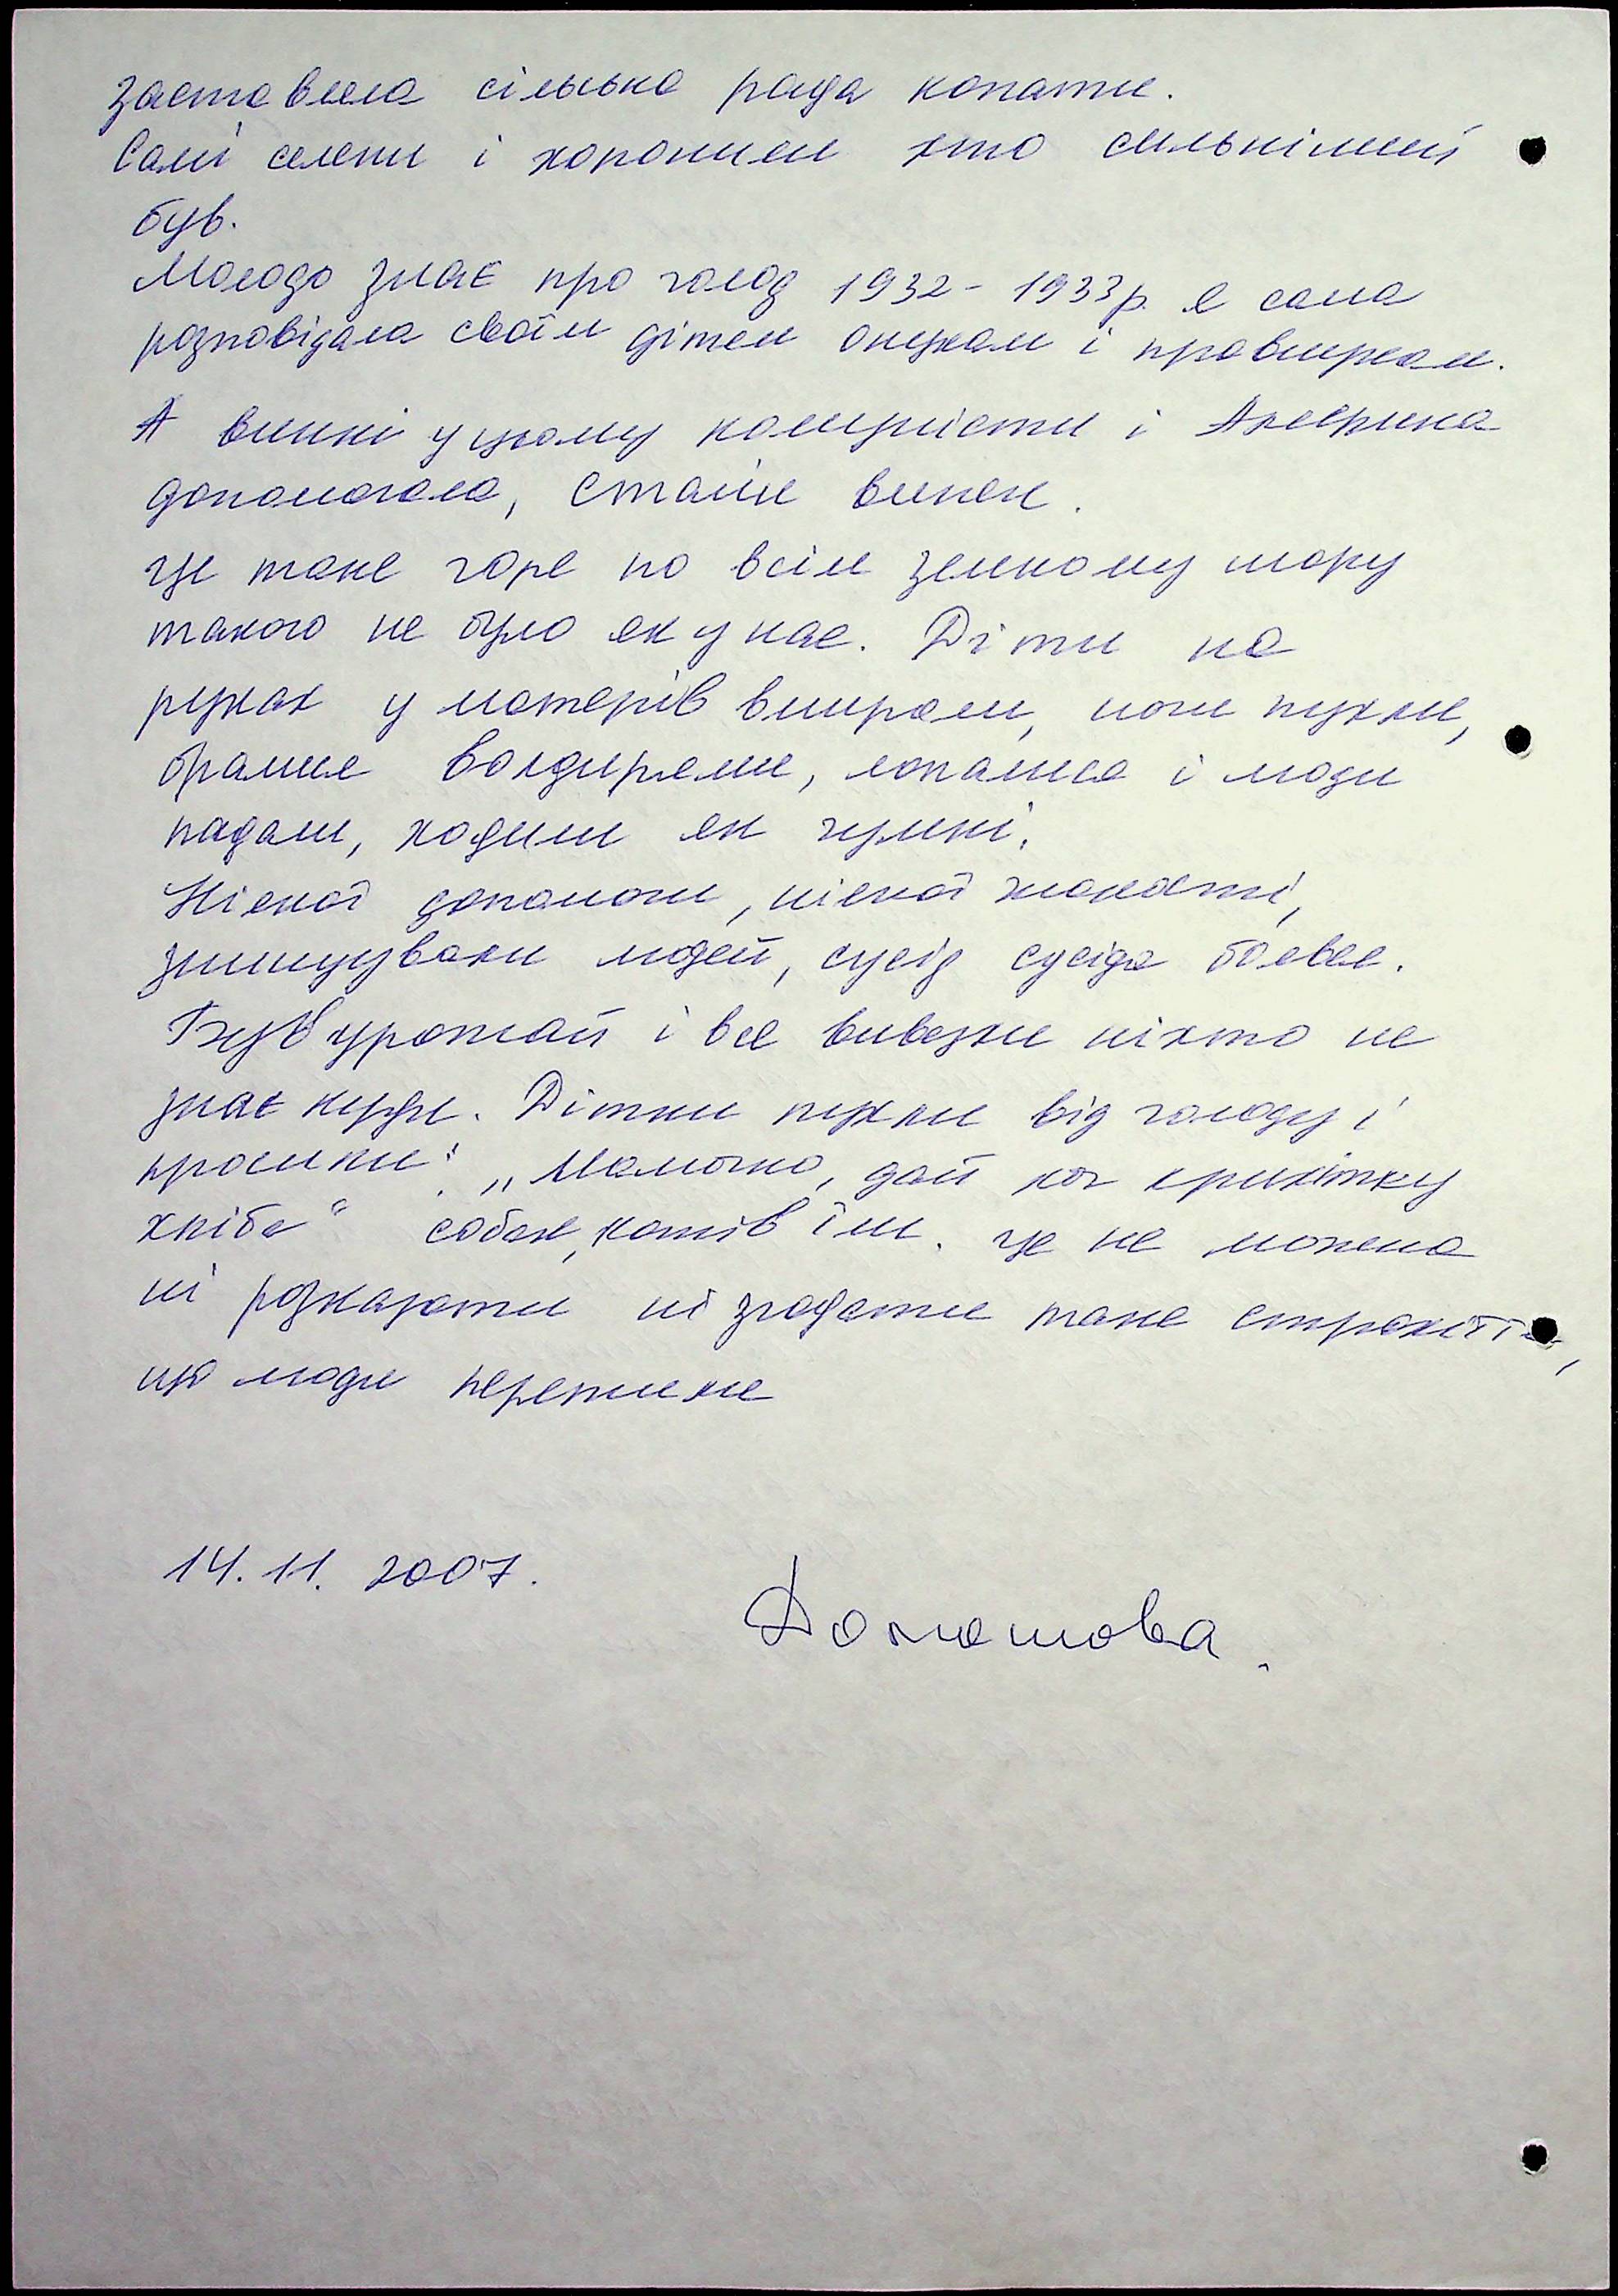 заставила сільська рада копати.
Самі селяни і хоронили хто сильніший
був.
Молодь знає про голод 1932 - 1933 р. я сама
розповідала своїм дітям онукам і правнукам.
А винні у цьому комуністи і Америка
допомагала, Сталін винен.
Це таке горе по всім земному шару
такого не було як у нас. Діти на
руках у матерів вмирали, ноги пухли,
бралися волдирями, лопалися і люди
падали, ходили як чумні.
Ніякої допомоги, ніякої жалості,
знищували людей, сусід сусіда боявся.
Був урожай і все вивезли ніхто не
знає куди. Дітки пухли від голоду і
просили: „Мамочко, дай хоч крихітку
хліба“ собак, котів їли. Це не можна
ні розказати ні згадати таке страхіття,
що люди пережили
14.11.2007.
Домашова.